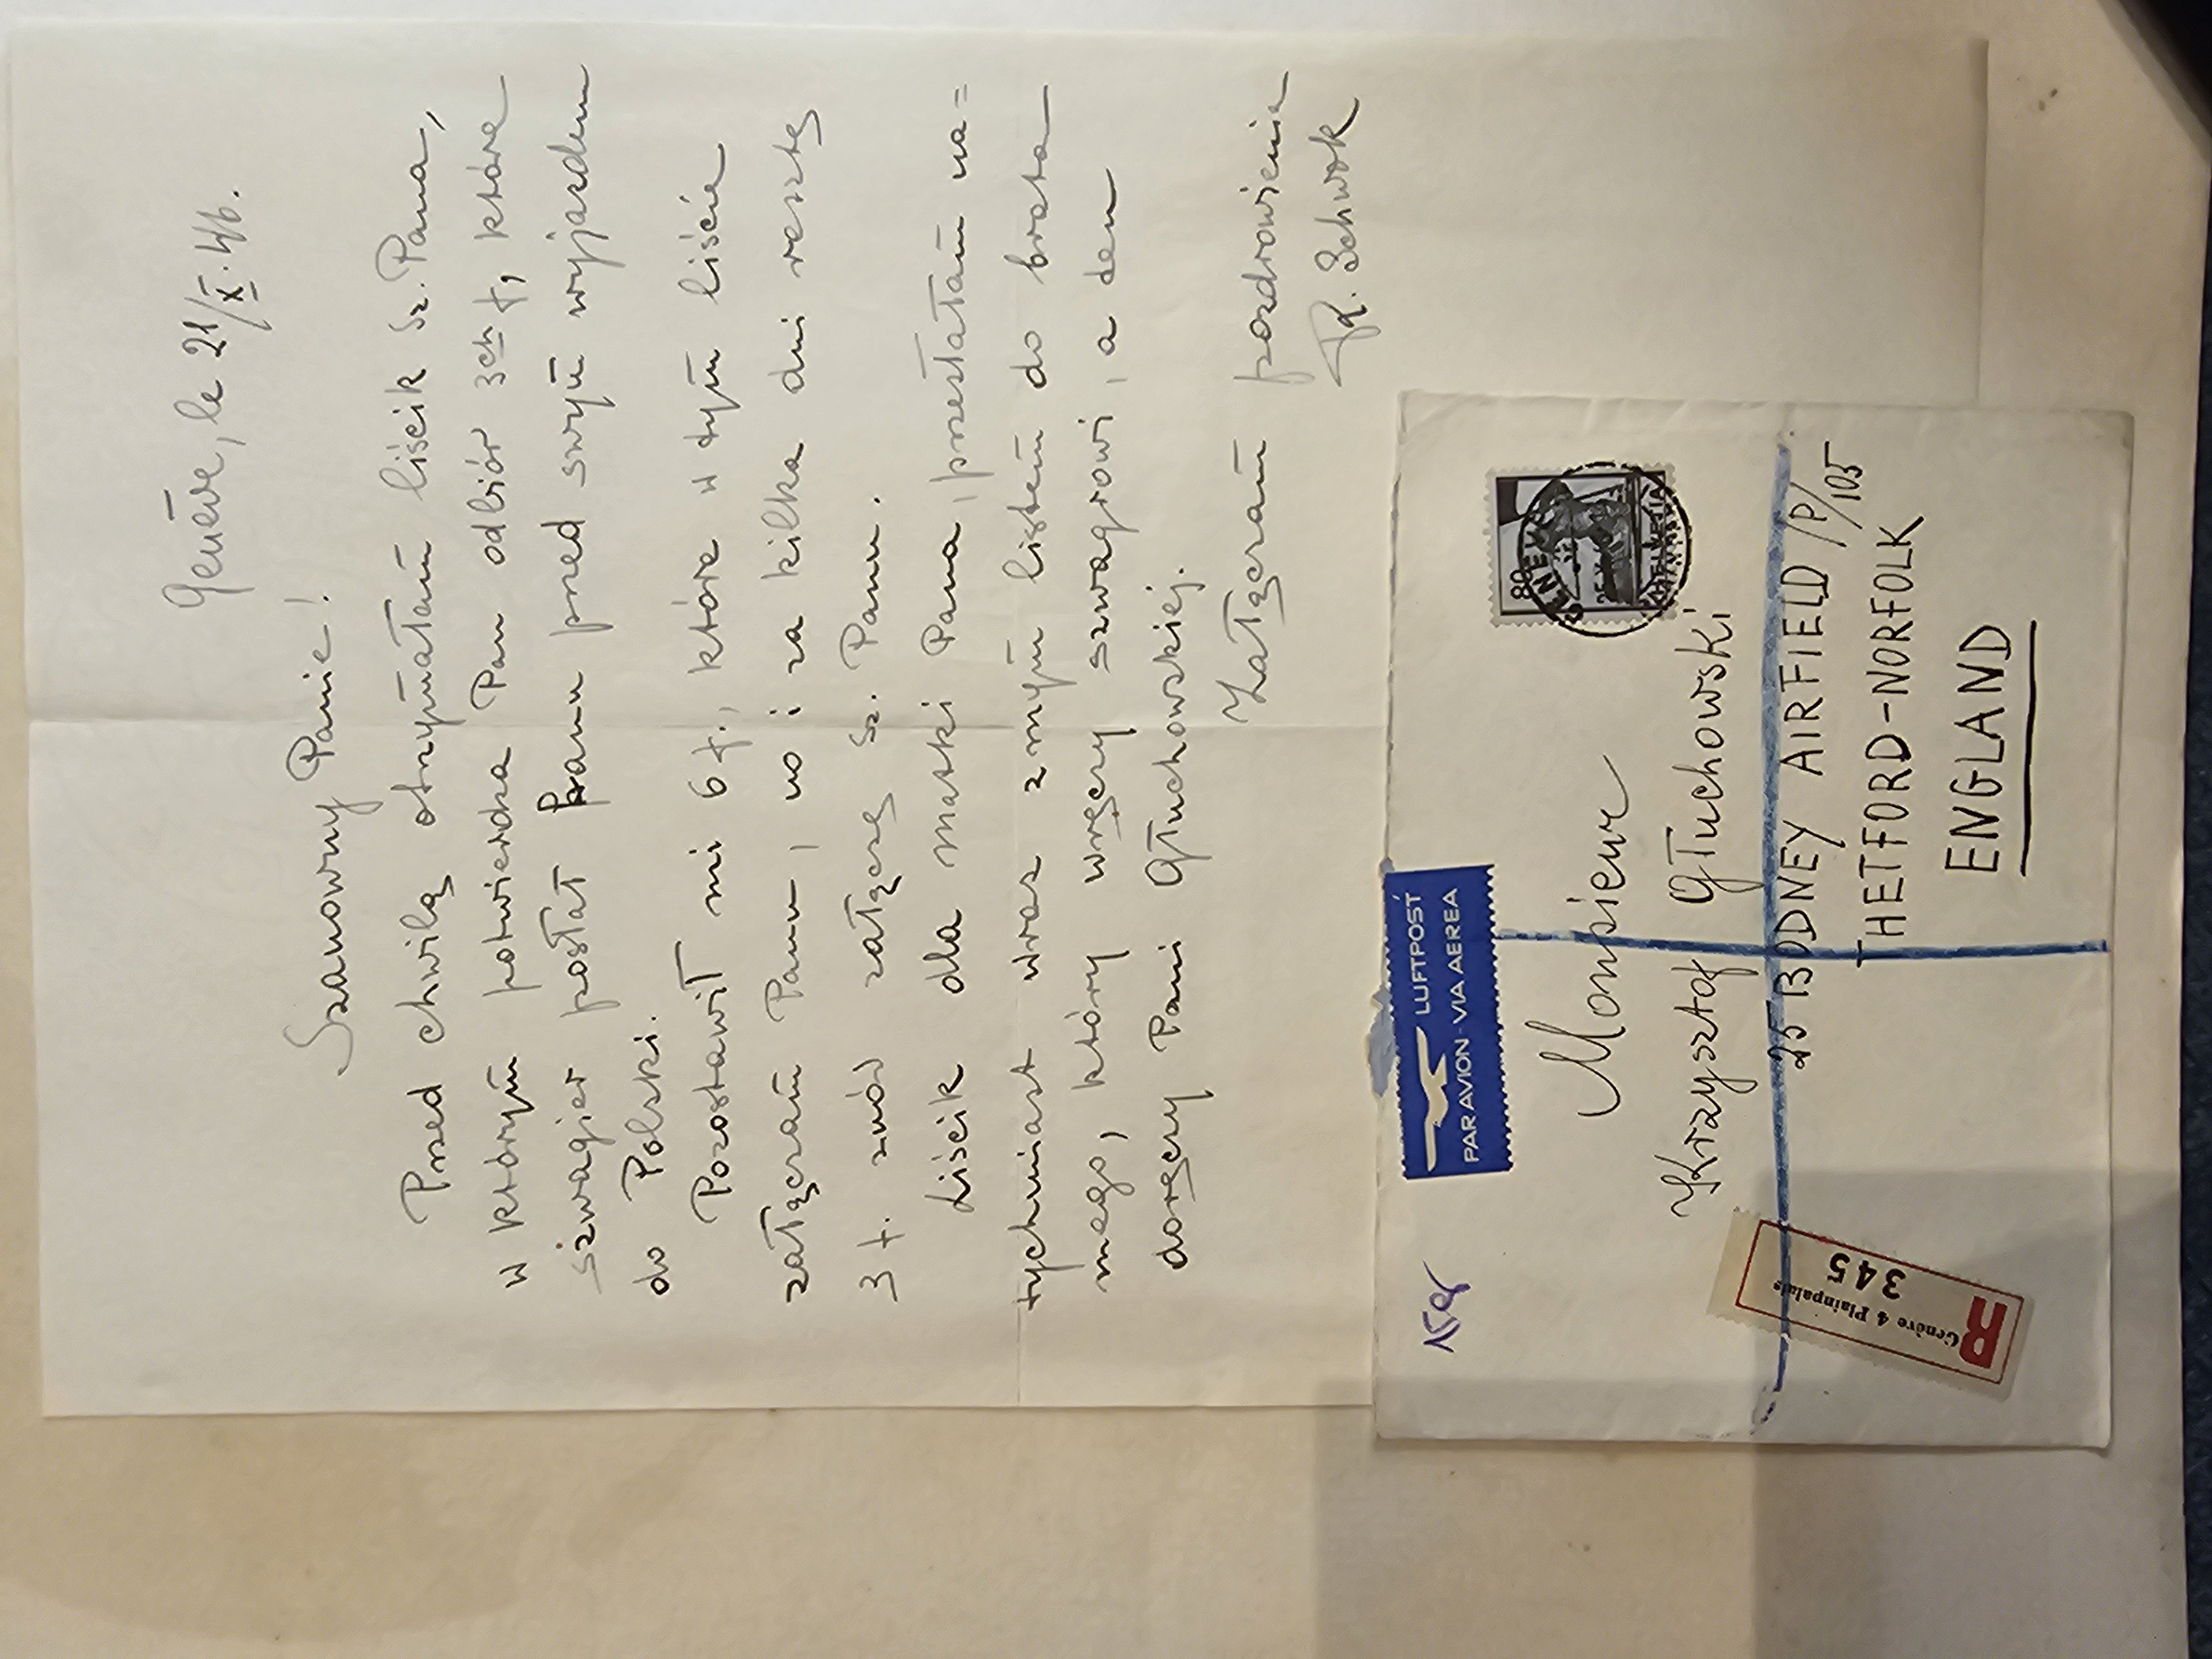 Genève, le 21/X.46.
Szanowny Panie!
Przed chwilą otrzymałam liścik Sz. Pana,
w którym potwierdza Pan odbiór 3ch f, które
szwagier posłał Panu przed swym wyjazdem
do Polski.
Pozostawił mi 6 f., które w tym liście
załączam Panu, no i za kilka dni resztę
3 f. znów załączę Sz. Panu.
Liścik dla matki Pana, przesłałam na=
tychmiast wraz z mym listem do brata
mego, który wręczy szwagrowi, a ten
doręczy Pani Głuchowskiej.
Załączam pozdrowienia
Schwok
PAR AVION - VIA AEREA
LUFTPOST
Monsieur
Krzysztof Głuchowski
25 BODNEY AIRFIELD /P/105
THETFORD-NORFOLK
ENGLAND
80
GENEVE
HELVETIA
R
Genève 4 Plainpalais
345